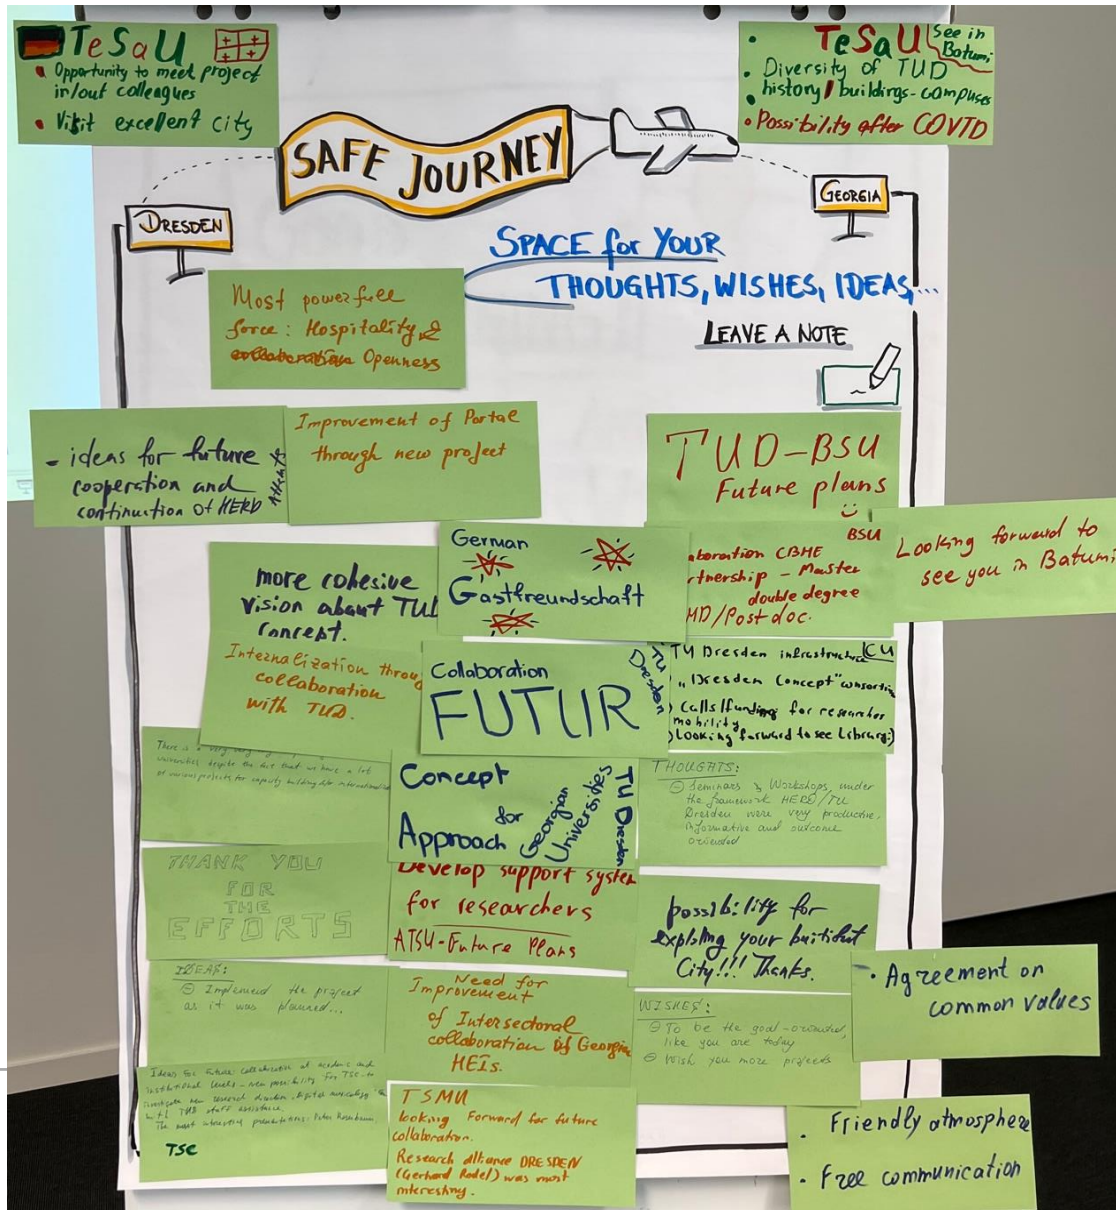 TeSaU
• Opportunity to meet project
in/out colleagues
• Visit excellent city
TeSaU
See in
Batumi
• Diversity of TUD
• history/buildings-campuses
• Possibility after COVID
SAFE JOURNEY
DRESDEN
GEORGIA
SPACE for YOUR
THOUGHTS, WISHES, IDEAS,...
LEAVE A NOTE
Most powerfull
force: Hospitality &
collaboration Openness
- ideas for future
cooperation and
continuation of HERD
Improvement of Portal
through new project
TUD-BSU
Future plans
BSU
aboration CBHE
rtnership - Master
double degree
MD/Post doc.
Looking forward to
see you in Batumi
German
Gastfreundschaft
more cohesive
vision about TUD
concept.
Internalization through
collaboration
with TUD.
Collaboration
FUTUR
TU
Dresden
TU Dresden infrastructure ICU
"Dresden Concept" consortiu
Calls/funding for researcher
mobility
Looking forward to see Library:)
There is a very
universities despite the fact that we have a lot
of various projects for capacity building for
Concept
for
Approach
Georgian
Universities
TU Dresden
THOUGHTS:
⊖ Seminars & Workshops, under
the framework HERD/TU
Dresden were very productive,
informative and outcome
oriented
THANK YOU
FOR
THE
EFFORTS
Develop support system
for researchers
ATSU-Future Plans
possibility for
exploing your buitifut
City!!! Thanks.
IDEAS:
⊖ Implemend the project
as it was planned...
Need for
Improvement
of Intersectoral
collaboration of Georgian
HEIs.
WISHES:
⊖ To be the goal-oriented,
like you are today
⊖ Wish you more projects
• Agreement on
common values
Ideas for Future: collaboration at academic and
institutional levels - new possibility for TSC - to
investigate new research direction "digital musicology"
with TUD staff assistance.
The most interesting presentations: Peter
TSC
TSMU
looking Forward for future
collaboration.
Research alliance DRESDEN
(Gerhard Rödel) was most
interesting.
• Friendly atmosphere
• Free communication